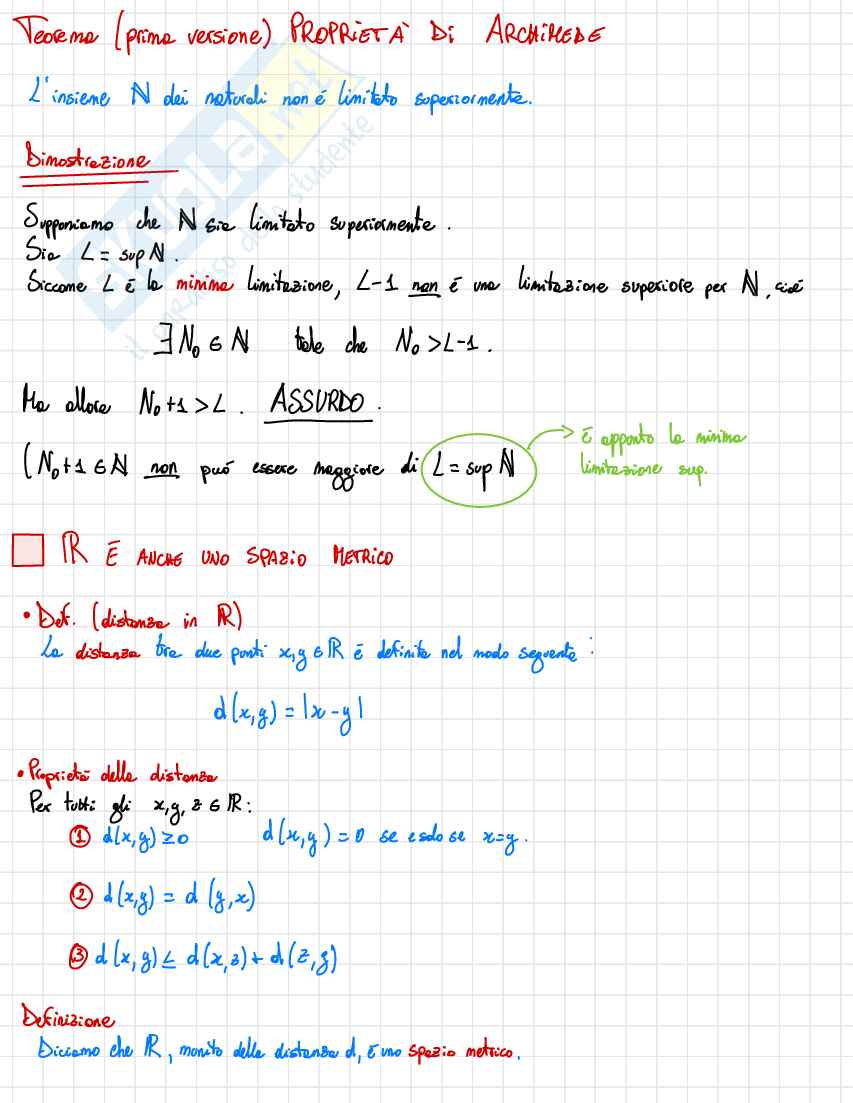 Teorema (prima versione) PROPRIETÀ DI ARCHIMEDE
L'insieme ℕ dei naturali non é limitato superiormente.
Dimostrazione
Supponiamo che ℕ sia limitato superiormente.
Sia L = sup ℕ.
Siccome L é la minima limitazione, L-1 non é una limitazione superiore per ℕ, cioé
∃ N₀ ∈ ℕ tale che N₀ > L-1.
Ma allora N₀+1 > L. ASSURDO.
(N₀+1 ∈ ℕ non può essere maggiore di L = sup ℕ
é apponto la minima
limitazione sup.
ℝ É ANCHE UNO SPAZIO METRICO
• Def. (distanza in ℝ)
La distanza tra due punti x,y ∈ ℝ é definita nel modo seguente:
d(x,y) = |x-y|
• Proprietà della distanza
Per tutti gli x,y,z ∈ ℝ:
① d(x,y) ≥ 0 d(x,y) = 0 se e solo se x=y.
② d(x,y) = d(y,x)
③ d(x,y) ≤ d(x,z) + d(z,y)
Definizione
Diciamo che ℝ, munito della distanza d, é uno spazio metrico.
SKUOLA.net
il paradiso dello studente